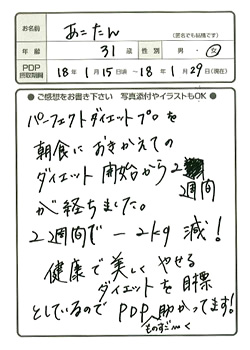 お名前 あこたん (匿名でも結構です)
年齢 31歳 性別 男・女
PDP摂取期間 18年1月15日頃～18年1月29日(現在)
●ご感想をお書き下さい 写真添付やイラストもOK●
パーフェクトダイエットプロを
朝食におきかえての
ダイエット開始から2週間
が経ちました。
2週間で－2kg減！
健康で美しくやせる
ダイエットを目標
としているのでPDP助かってます！
ものすごーく